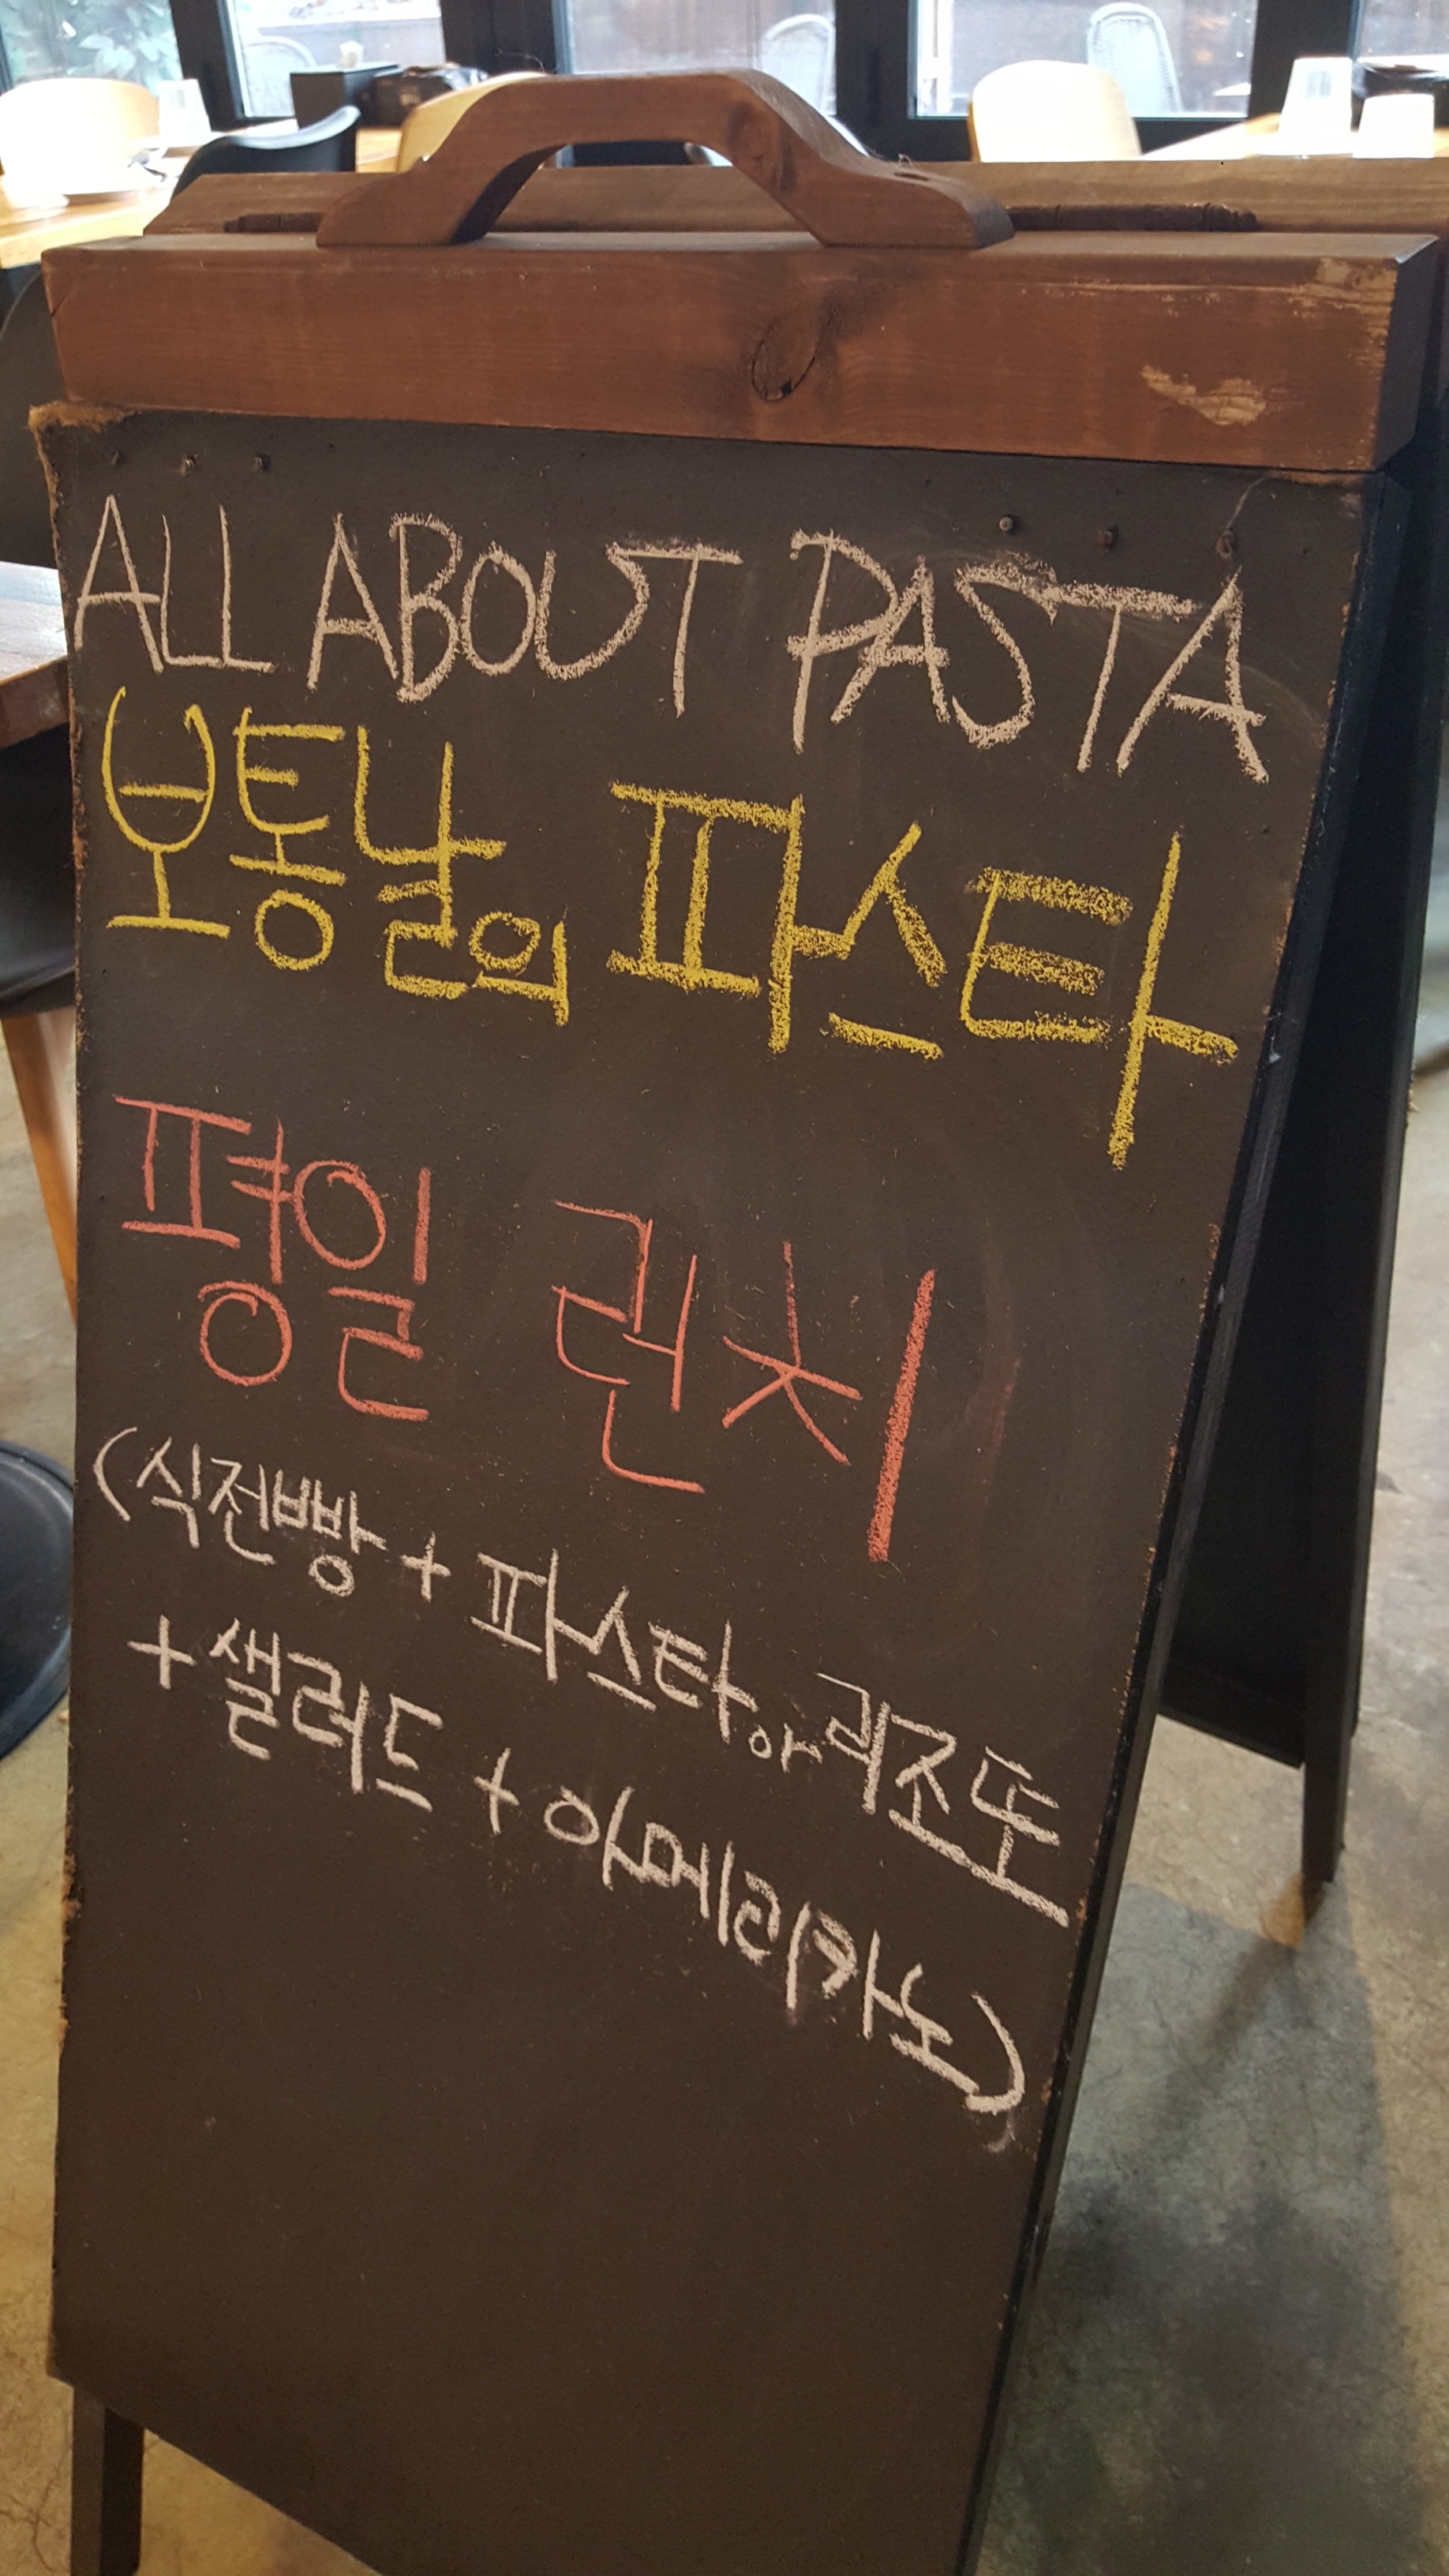 ALL ABOUT PASTA
보통날의 파스타
평일 런치
(식전빵 + 파스타or리조또
+ 샐러드 + 아메리카노)